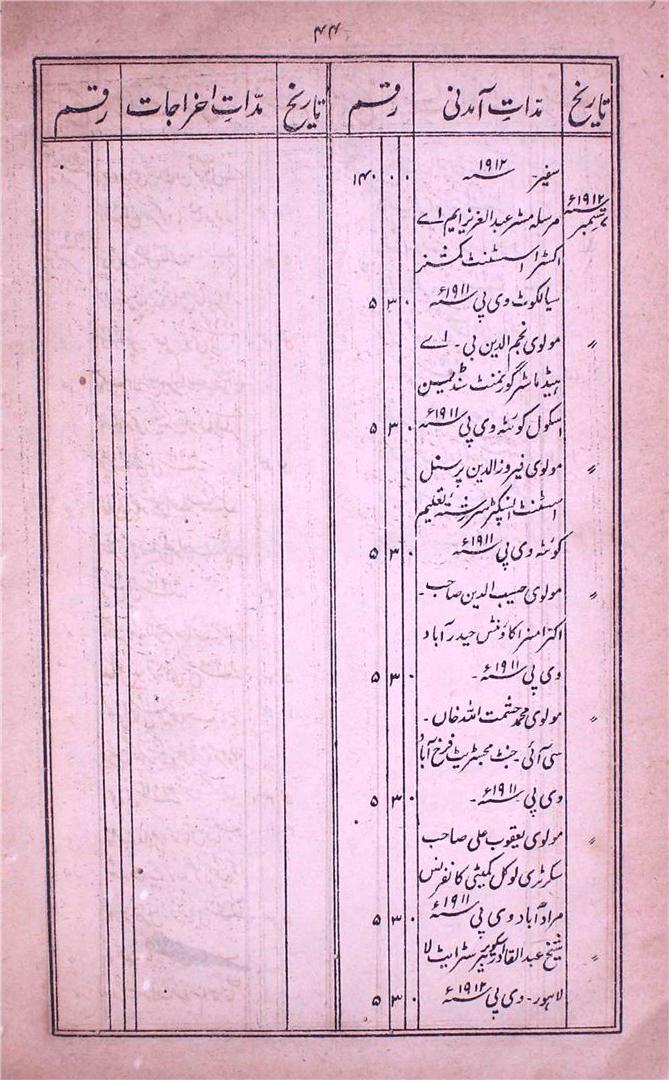 ۴۴
تاریخ مدّاتِ آمدنی رقم تاریخ مدّاتِ اخراجات رقم
سفیر۔ سنہ ۱۹۱۲ ۰ ۰ ۱۴۰
۷ ستمبر سنہ ۱۹۱۲ء مرسلہ مسٹر عبدالعزیز ایم اے
اکسٹرا اسسٹنٹ کمشنر
سیالکوٹ وی پی سنہ ۱۹۱۱ء ۰ ۳ ۵
〃 مولوی نجم الدین بی۔ اے
ہیڈ ماسٹر گورنمنٹ سنڈیمین
اسکول کوئٹہ وی پی سنہ ۱۹۱۱ء ۰ ۳ ۵
〃 مولوی فیروز الدین پرسنل
اسسٹنٹ انسپکٹر سررشتۂ تعلیم
کوئٹہ وی پی سنہ ۱۹۱۱ء ۰ ۳ ۵
〃 مولوی حسیب الدین صاحب۔
اکزامنر اکاؤنٹس حیدرآباد
وی پی سنہ ۱۹۱۱ء۔ ۰ ۳ ۵
〃 مولوی محمد حشمت اللہ خاں۔
سی آئی جنٹ مجسٹریٹ فرخ آباد
وی پی سنہ ۱۹۱۱ء۔ ۰ ۳ ۵
〃 مولوی یعقوب علی صاحب
سکرٹری لوکل کمیٹی کانفرنس
مرادآباد وی پی سنہ ۱۹۱۱ء ۰ ۳ ۵
〃 شیخ عبدالقادر اسکویر بیرسٹر ایٹ لا
لاہور۔ وی پی سنہ ۱۹۱۲ء ۰ ۳ ۵